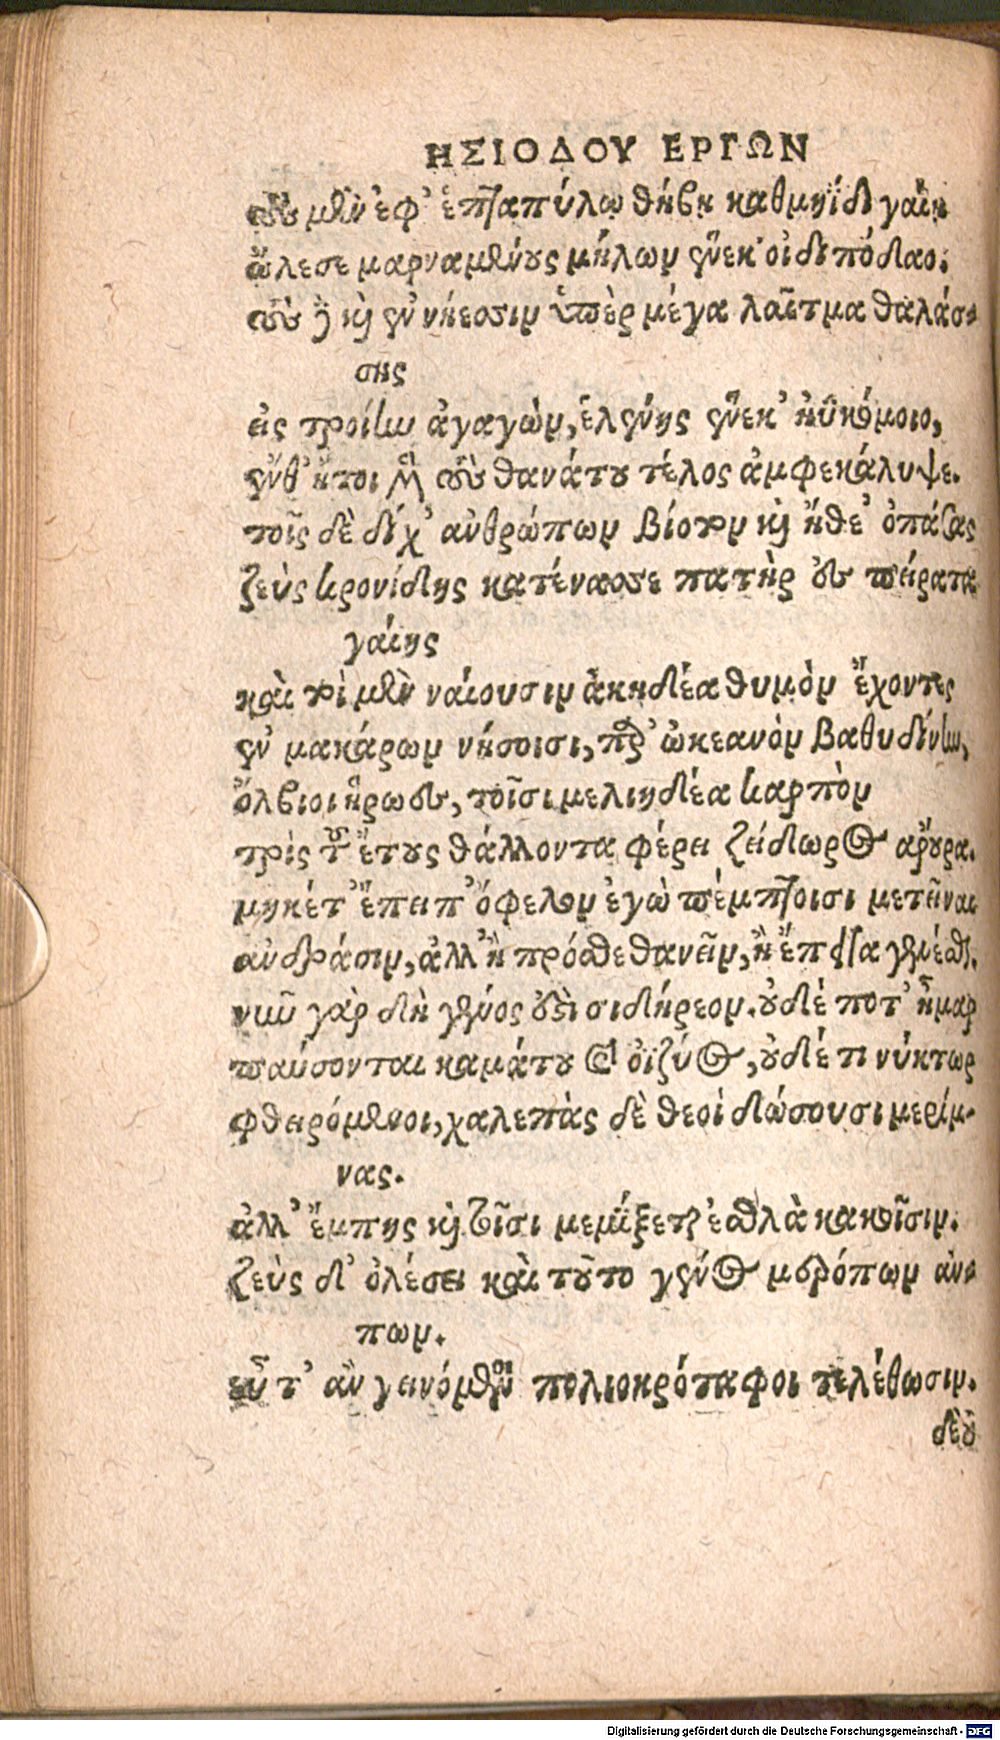 ΗΣΙΟΔΟΥ ΕΡΓΩΝ
τοὺς μὲν ἐφ' ἑπταπύλῳ θήβῃ καθμηΐδι γαίῃ
ὤλεσε μαρναμένους μήλων ἕνεκ' οἰδιπόδαο.
τοὺς δὲ καὶ ἐν νήεσσιν ὑπὲρ μέγα λαῖτμα θαλάσ-
σης
εἰς τροίην ἀγαγὼν, ἑλένης ἕνεκ' ἠϋκόμοιο,
ἔνθ' ἤτοι μὲν τοὺς θανάτου τέλος ἀμφεκάλυψε.
τοῖς δὲ δίχ' ἀνθρώπων βίοτον καὶ ἤθε' ὀπάσσας
ζεὺς κρονίδης κατένασσε πατὴρ ἐς πείρατα
γαίης
καὶ τοὶ μὲν ναίουσιν ἀκηδέα θυμὸν ἔχοντες
ἐν μακάρων νήσοισι, παρ' ὠκεανὸν βαθυδίνην,
ὄλβιοι ἥρωες, τοῖσι μελιηδέα καρπὸν
τρὶς τοῦ ἔτους θάλλοντα φέρει ζείδωρος ἄρουρα.
μηκέτ' ἔπειτ' ὄφελον ἐγὼ πέμπτοισι μετεῖναι
ἀνδράσιν, ἀλλ' ἢ πρόσθε θανεῖν, ἢ ἔπειτα γενέσθαι.
νῦν γὰρ δὴ γένος ἐστὶ σιδήρεον. οὐδέ ποτ' ἦμαρ
παύσονται καμάτου καὶ ὀϊζύος, οὐδέ τι νύκτωρ
φθειρόμενοι, χαλεπὰς δὲ θεοὶ δώσουσι μερίμ-
νας.
ἀλλ' ἔμπης καὶ τοῖσι μεμίξεται ἐσθλὰ κακοῖσιν.
ζεὺς δ' ὀλέσει καὶ τοῦτο γένος μερόπων ἀν-
πων.
εὖτ' ἂν γεινόμενοι πολιοκρόταφοι τελέθωσιν.
Digitalisierung gefördert durch die Deutsche Forschungsgemeinschaft - DFG